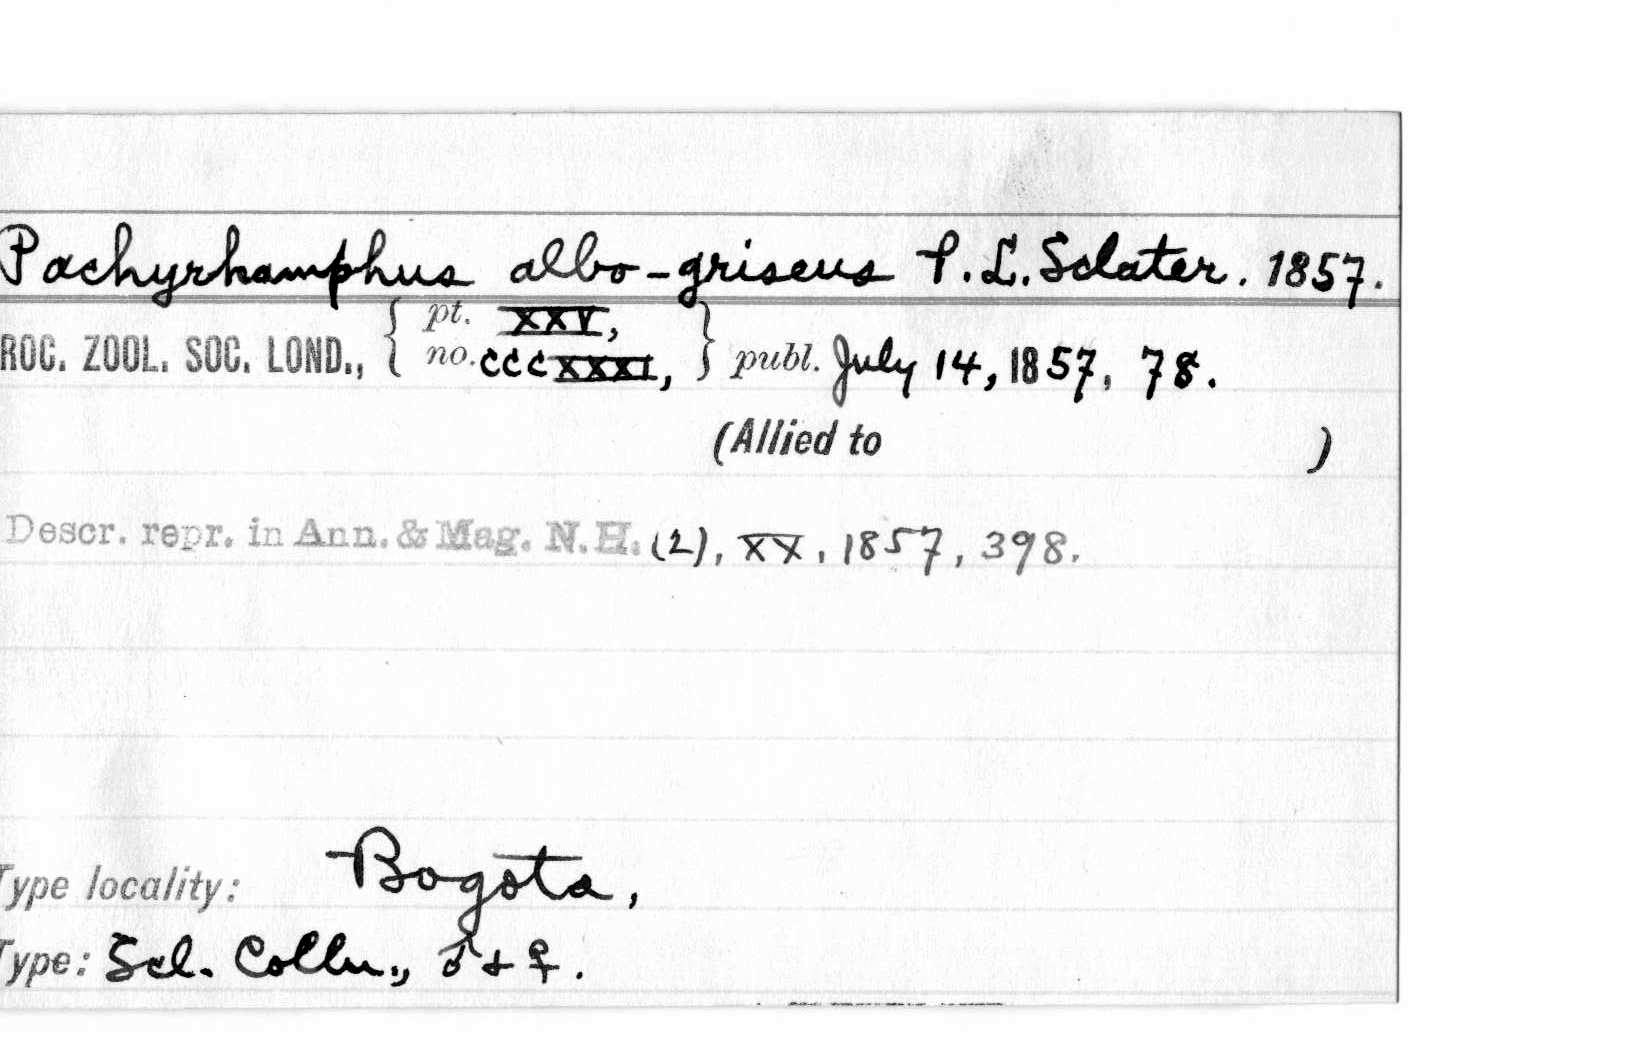 Pachyrhamphus albo-griseus P. L. Sclater. 1857.
ROC. ZOOL. SOC. LOND., { pt. XXV, no. cccxxxi, } publ. July 14, 1857, 78.
(Allied to )
Descr. repr. in Ann. & Mag. N.H. (2), XX, 1857, 398.
Type locality: Bogota,
Type: Scl. Colln., ♂ + ♀.